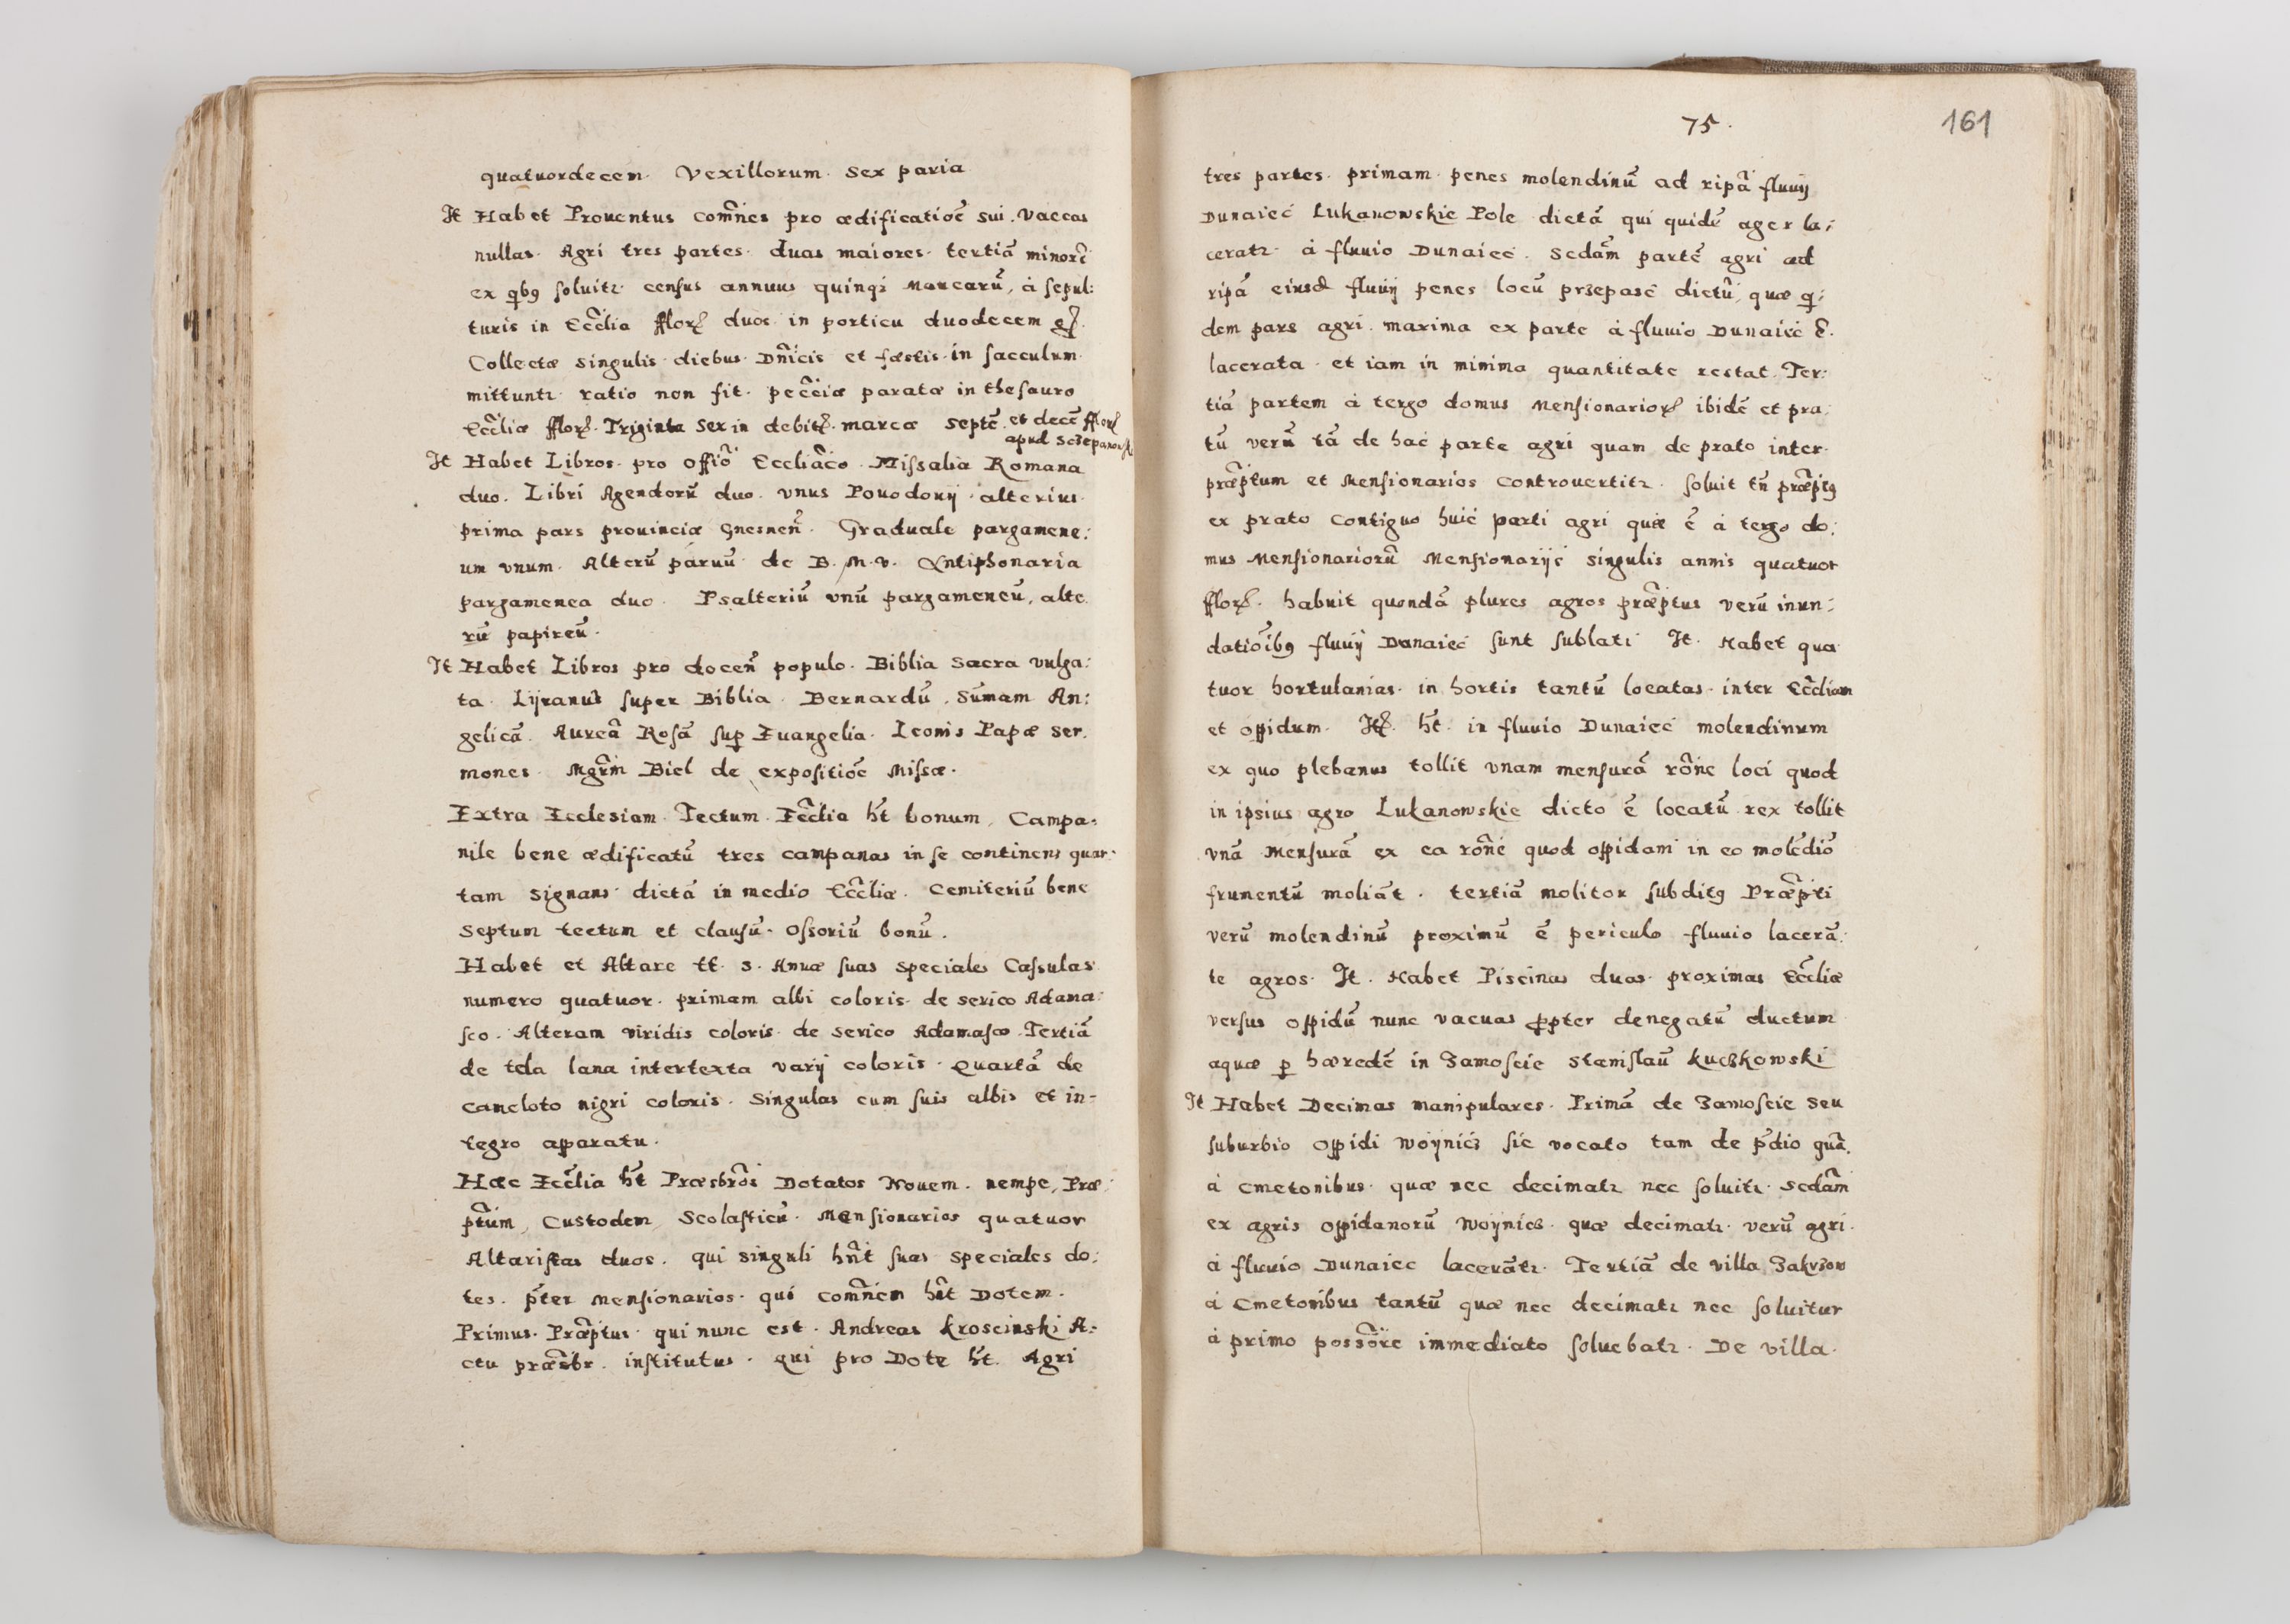 quatuordecem. Vexillorum. Sex paria
It Habet Prouentus Com̃nes pro ædificatiõe sui. Vaccas
nullas. Agri tres partes. duas maiores. tertiã minorẽ
ex qbꝯ soluitr census annuus quinqꝫ Marcarũ, à sepul:
turis in Eccl̃ia fflorꝝ duos in porticu duodecem gꝝ.
Collectæ singulis diebus Dñicis et fæstis in sacculum
mittuntr ratio non fit. pecc̃iæ paratæ in thesauro
Eccl̃iæ fflorꝝ. Triginta Sex in debitꝭ. marcæ septẽ. et decẽ fflorꝝ
apud
It Habet Libros pro Offiõ Eccliãco. Missalia Romana
duo. Libri Agendorũ duo. vnus Pouodouij. alterius
prima pars prouinciæ Gnesneñ. Graduale pargamene:
um vnum. Alterũ paruũ de B. M. v. Antiphonaria
pargamenea duo. Psalteriũ vnũ pargameneũ, alte
rũ papireũ.
It Habet Libros pro doceñ populo. Biblia Sacra vulga:
ta. Lijranus super Biblia. Bernardũ. Sũmam An:
gelicã. Aureã Rosã sup Euangelia. Leonis Papæ Ser.
mones. Mgrm̃ Biel de expositiõe Missæ.
Extra Ecclesiam. Tectum Eccl̃ia ht̃ bonum, Campa:
nile bene ædificatũ tres campanas in se continens quar:
tam signans dictã in medio Eccl̃iæ. Cemiteriũ bene
Septum tectum et clausũ. Ossoriũ bonũ.
Habet et Altare tt. S. Annæ suas speciales Cassulas
numero quatuor. primam albi coloris de serico Adama:
sco. Alteram viridis coloris de serico Adamasco. Tertiã
de tela lana intertexta varij coloris. Quartã de
Cameloto nigri coloris. Singulas cum suis albis et in-
tegro apparatu.
Hæc Eccl̃ia ht̃ Præsbrõs Dotatos Nouem. nempe, Præ:
ptũm, Custodem, Scolasticũ. Mansionarios quatuor
Altaristas duos. qui singuli hñt suas speciales do:
tes. p̃ter Mensionarios. qui com̃nem hñt Dotem.
Primus. Præp̃tus. qui nunc est. Andreas Kroscinski A:
ctu præsbr. institutus. qui pro Dote ht̃. Agri
75.
161
tres partes. primam penes molendinũ ad ripã fluuij
Dunaiec Lukanowskie Pole dictã qui quidẽ ager la:
ceratr à fluuio Dunaiec. Scdãm partẽ agri ad
ripã eiusd fluuij penes locũ przepasc dictũ, quæ q:
dem pars agri maxima ex parte à fluuio Dunaiec ẽ.
lacerata et iam in minima quantitate restat. Ter:
tiã partem à tergo domus Mensionariorꝝ ibidẽ et pra:
tũ verũ tã de hac parte agri quam de prato inter
præp̃tum et Mensionarios controuertitr. soluit tñ præp̃tꝯ
ex prato contiguo huic parti agri quæ ẽ à tergo do:
mus Mensionariorũ Mensionarijs singulis annis quatuor
fflorꝝ. habuit quondã plures agros præp̃tus verũ inun:
datiõibꝯ fluuij Dunaiec sunt sublati. It. Habet qua
tuor hortulanias in hortis tantũ locatas inter Eccl̃iam
et oppidum. Itꝭ. ht̃. in fluuio Dunaiec molendinum
ex quo plebanus tollit vnam mensurã rõne loci quod
in ipsius agro Lukanowskie dicto ẽ locatũ rex tollit
vnã Mensurã ex ea rõne quod oppidani in eo molẽdiõ
frumentũ moliãt. tertiã molitor subditꝯ Præp̃ti
verũ molendinũ proximũ ẽ periculo fluuio lacerã:
te agros. It. Habet Piscinas duas proximas Eccl̃iæ
versus oppidũ nunc vacuas ꝓpter denegatũ ductum
aquæ p hæredẽ in Zamoscie Stanislaũ Kuczkowski
It Habet Decimas manipulares. Primã de Zamoscie Seu
suburbio oppidi Woynicz sic vocato tam de p̃dio quã.
à Cmetonibus. quæ nec decimatr nec soluitr. Scdãm
ex agris oppidanorũ Woynicz quæ decimatr. verũ agri.
à fluuio Dunaiec lacerãtr. Tertiã de villa Zakrzow
à Cmetonibus tantũ quæ nec decimatr nec soluitur
à primo possõre immediato soluebatr. De villa